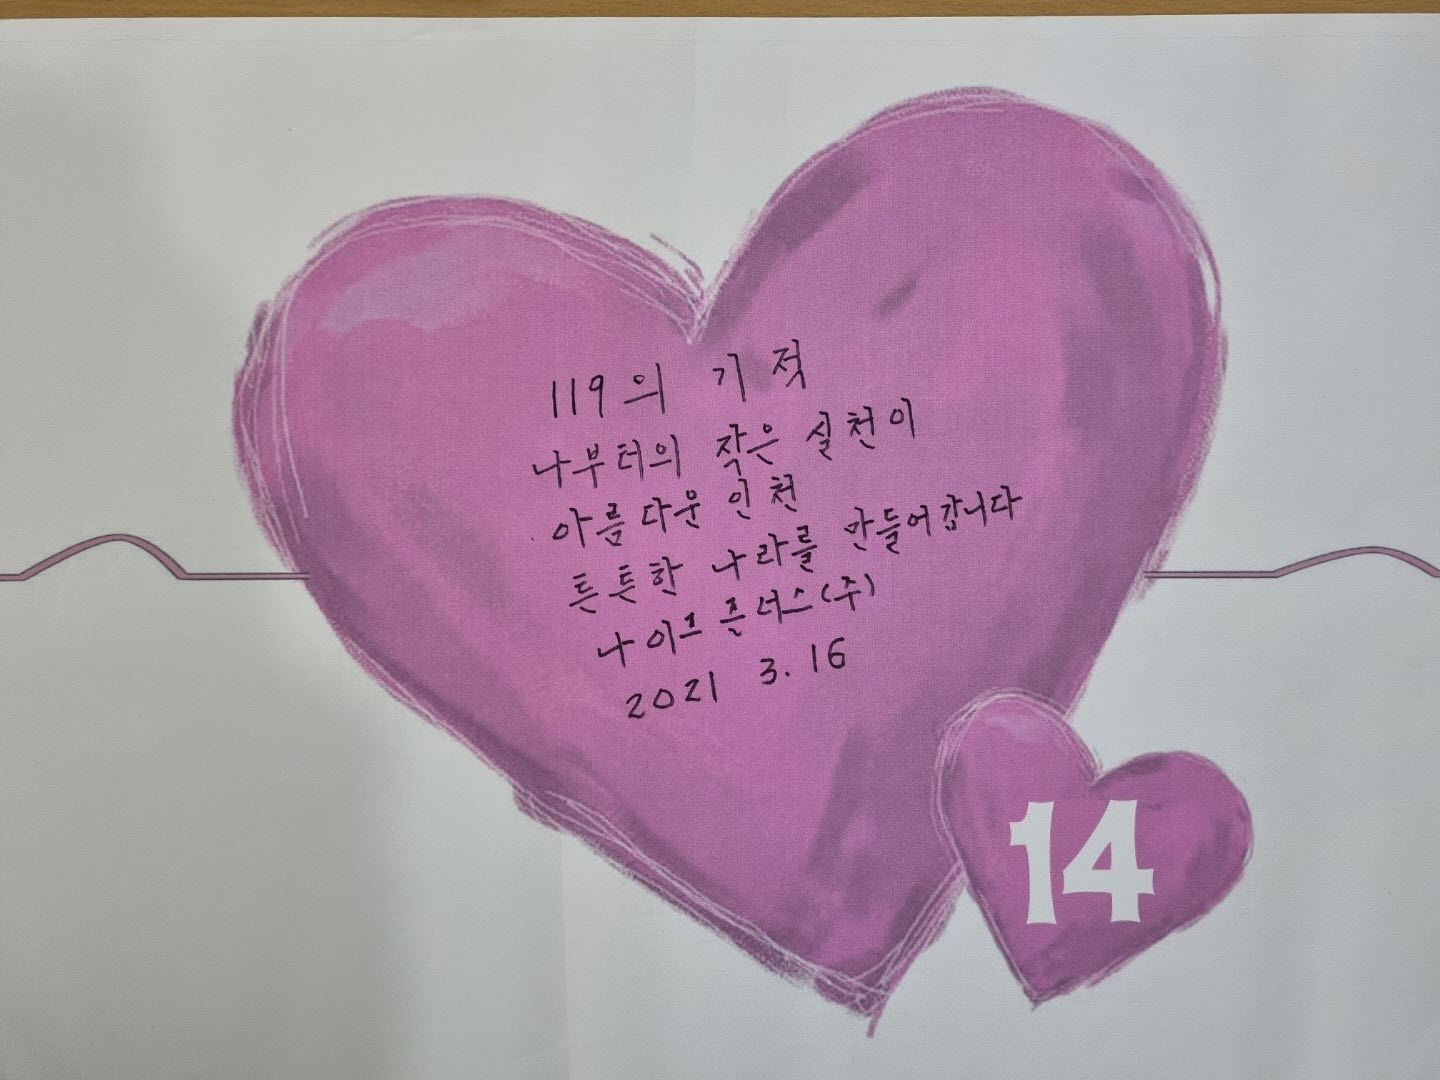 119의 기적
나부터의 작은 실천이
아름다운 인천
튼튼한 나라를 만들어갑니다
나이프 플러스(주)
2021 3. 16
14